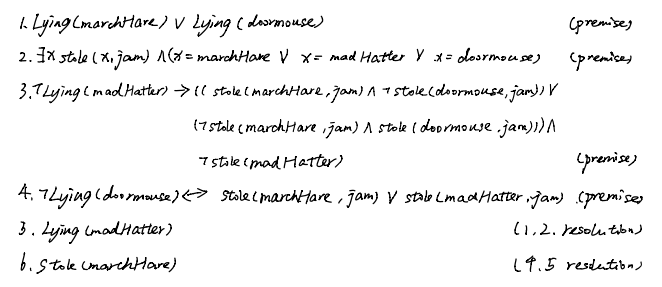 1. Lying(marchHare) ∨ Lying(doormouse) (premise)
2. ∃x stole(x, jam) ∧ (x = marchHare ∨ x = madHatter ∨ x = doormouse) (premise)
3. ¬Lying(madHatter) → ((stole(marchHare, jam) ∧ ¬stole(doormouse, jam)) ∨
(¬stole(marchHare, jam) ∧ stole(doormouse, jam))) ∧
¬stole(madHatter) (premise)
4. ¬Lying(doormouse) ↔ stole(marchHare, jam) ∨ stole(madHatter, jam) (premise)
5. Lying(madHatter) (1, 2. resolution)
6. Stole(marchHare) (4. 5 resolution)